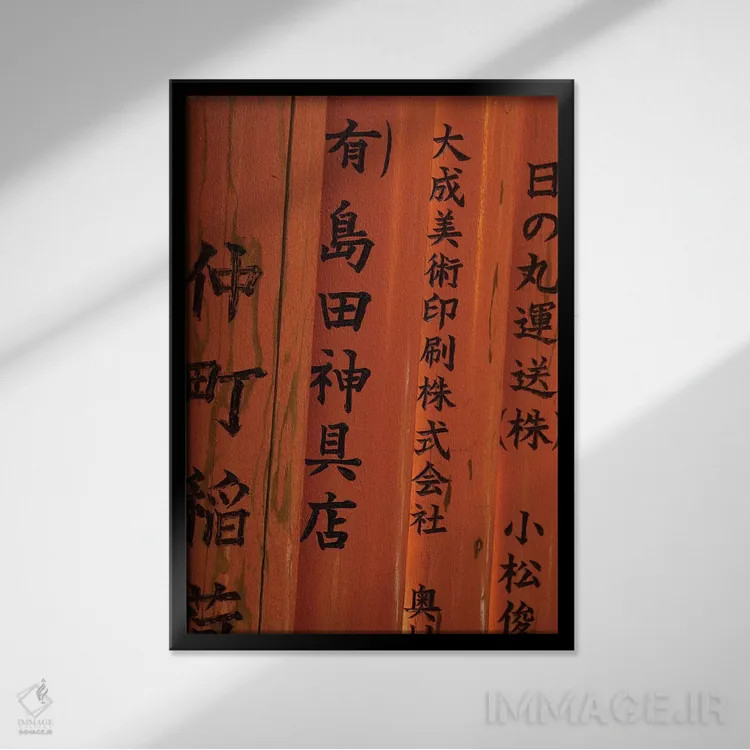 日の丸運送(株) 小松俊
大成美術印刷株式会社 奥
有) 島田神具店
仲町稲
IMMAGE
IMMAGE.IR
IMMAGE.IR